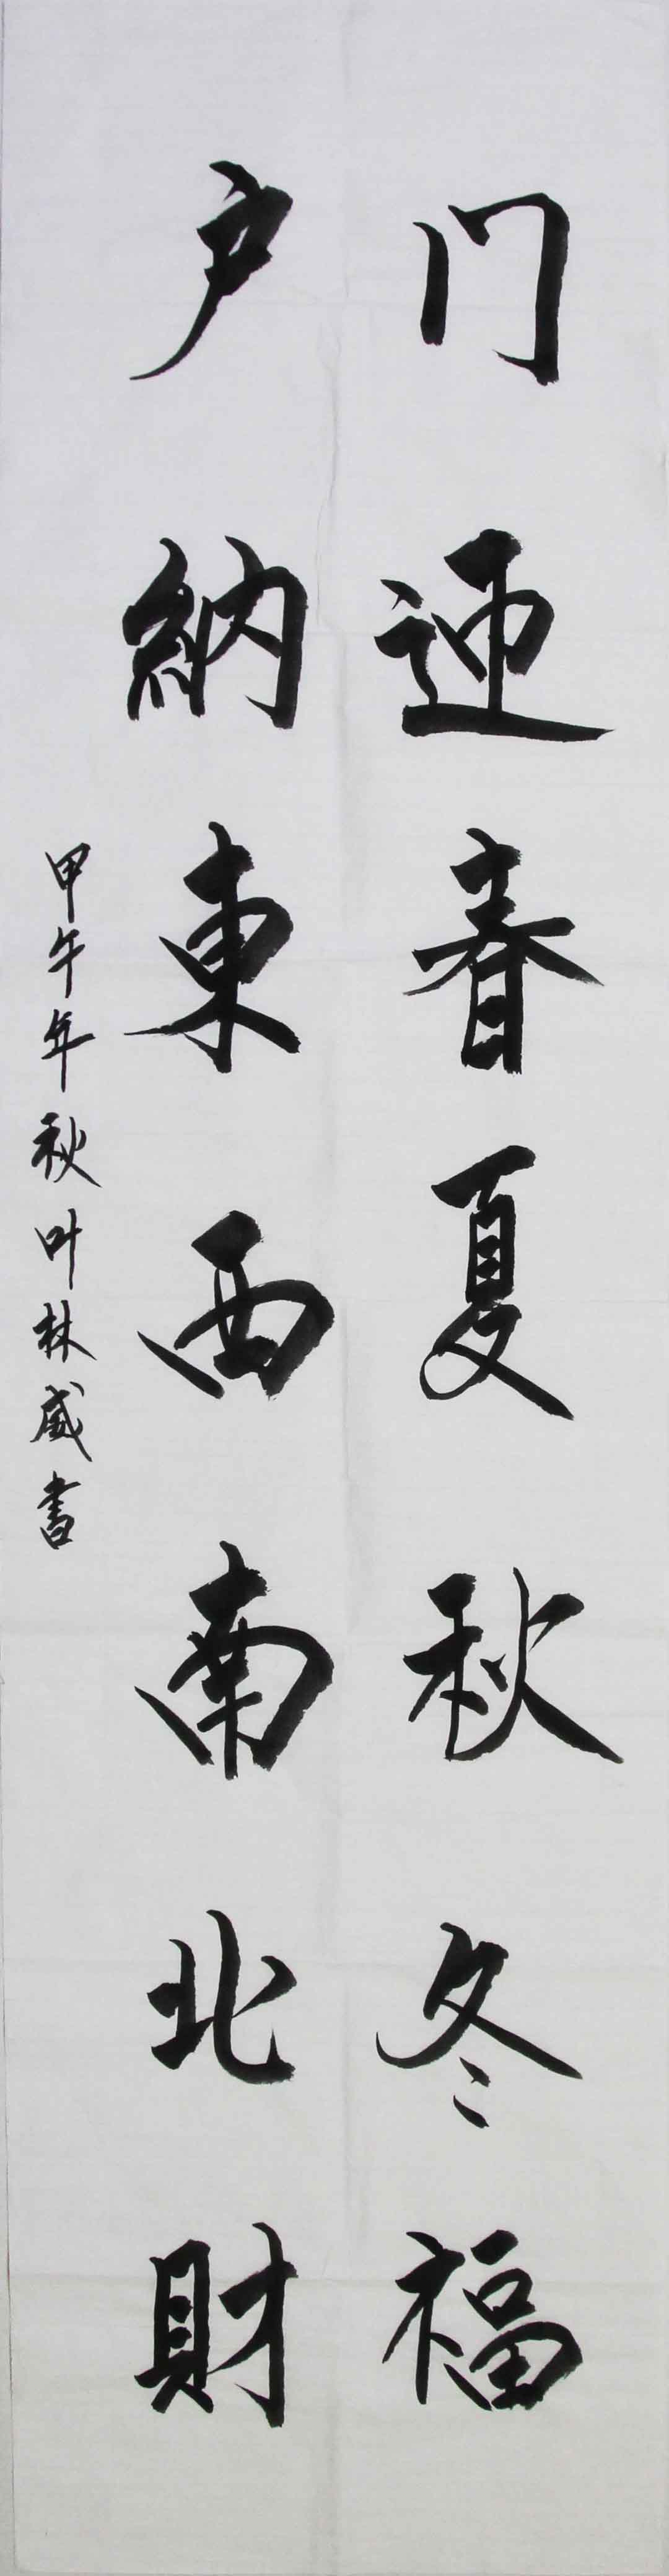 门迎春夏秋冬福
户納東西南北財
甲午年秋叶林威書